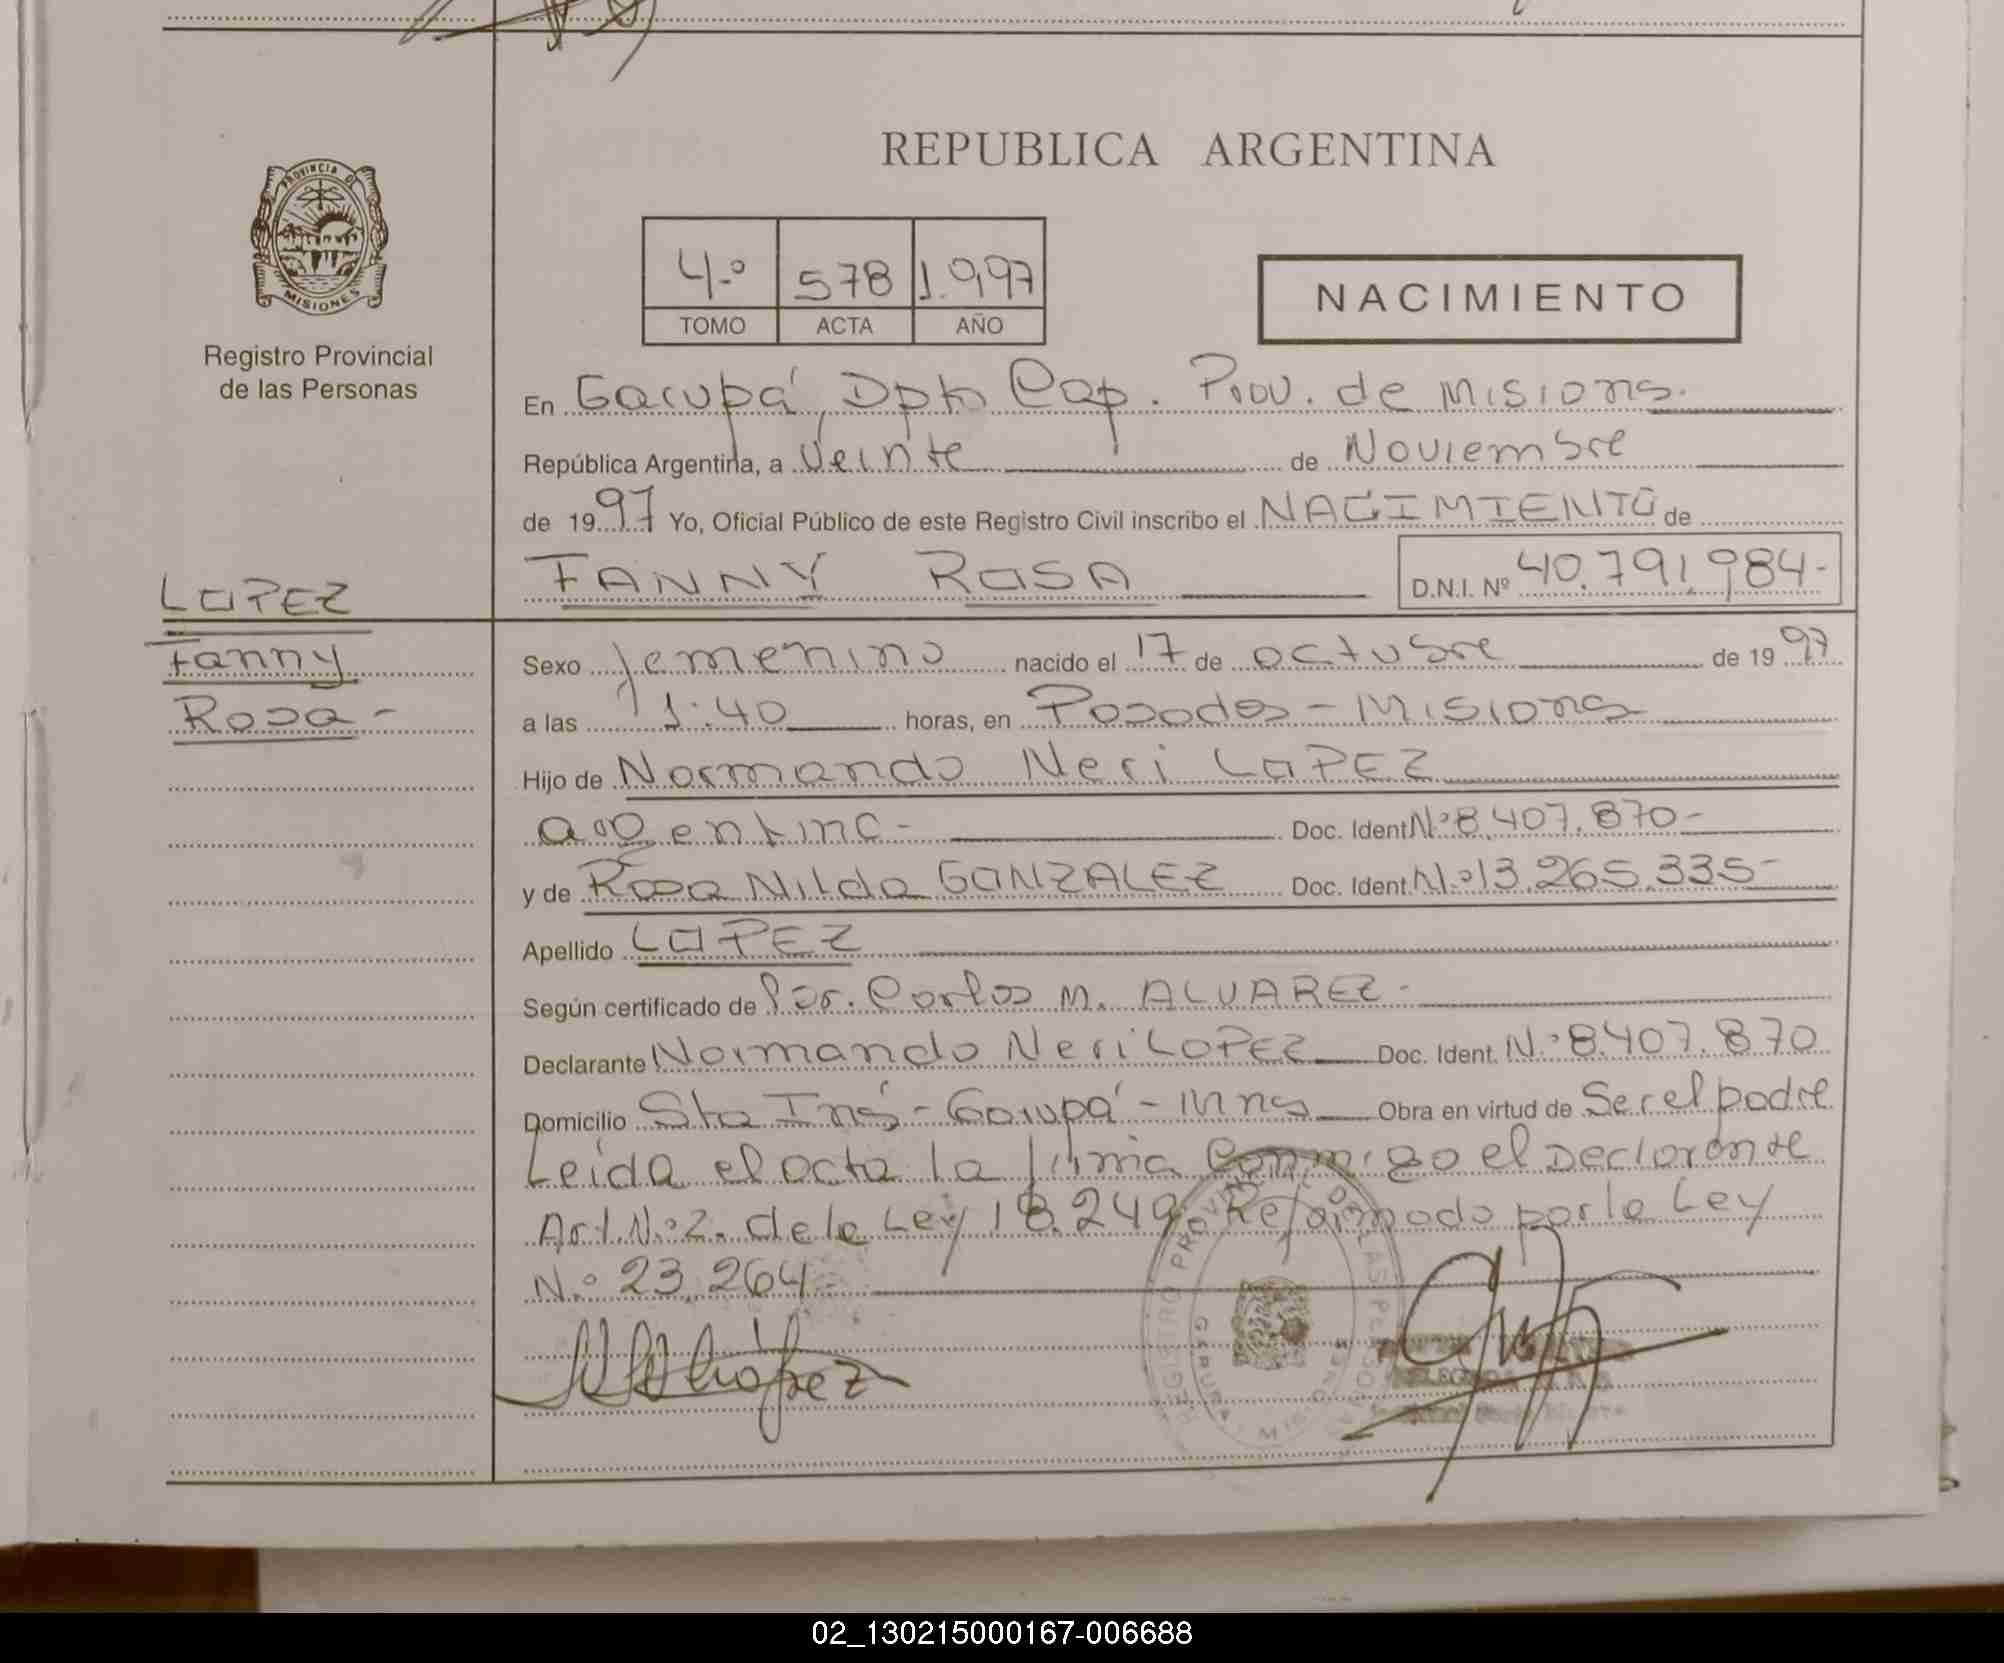 REPUBLICA ARGENTINA
PROVINCIA DE
MISIONES
Registro Provincial
de las Personas
4.º 578 1.997
TOMO ACTA AÑO
NACIMIENTO
En Garupá, Dpto Cap. Prov. de Misiones.
República Argentina, a veinte de Noviembre
de 1997 Yo, Oficial Público de este Registro Civil inscribo el NACIMIENTO de
FANNY ROSA D.N.I. Nº 40.791.984-
LOPEZ
Fanny
Rosa-
Sexo femenino nacido el 17 de octubre de 1997
a las 11:40 horas, en Posadas - Misiones
Hijo de Normando Neri LOPEZ
argentino- Doc. Ident. Nº 8.407.870-
y de Rosa Nilda GONZALEZ Doc. Ident. Nº 13.265.335-
Apellido LOPEZ
Según certificado de Dr. Carlos M. ALVAREZ-
Declarante Normando Neri LOPEZ Doc. Ident. Nº 8.407.870
Domicilio Sta Inés - Garupá - Mnes Obra en virtud de Ser el padre
Leída el acta la firma conmigo el Declarante
Art. Nº 2. de la Ley 18.249 Reformado por la Ley
Nº 23.264-
REGISTRO PROVINCIAL DE LAS PERSONAS
GARUPA MISIONES
02_130215000167-006688